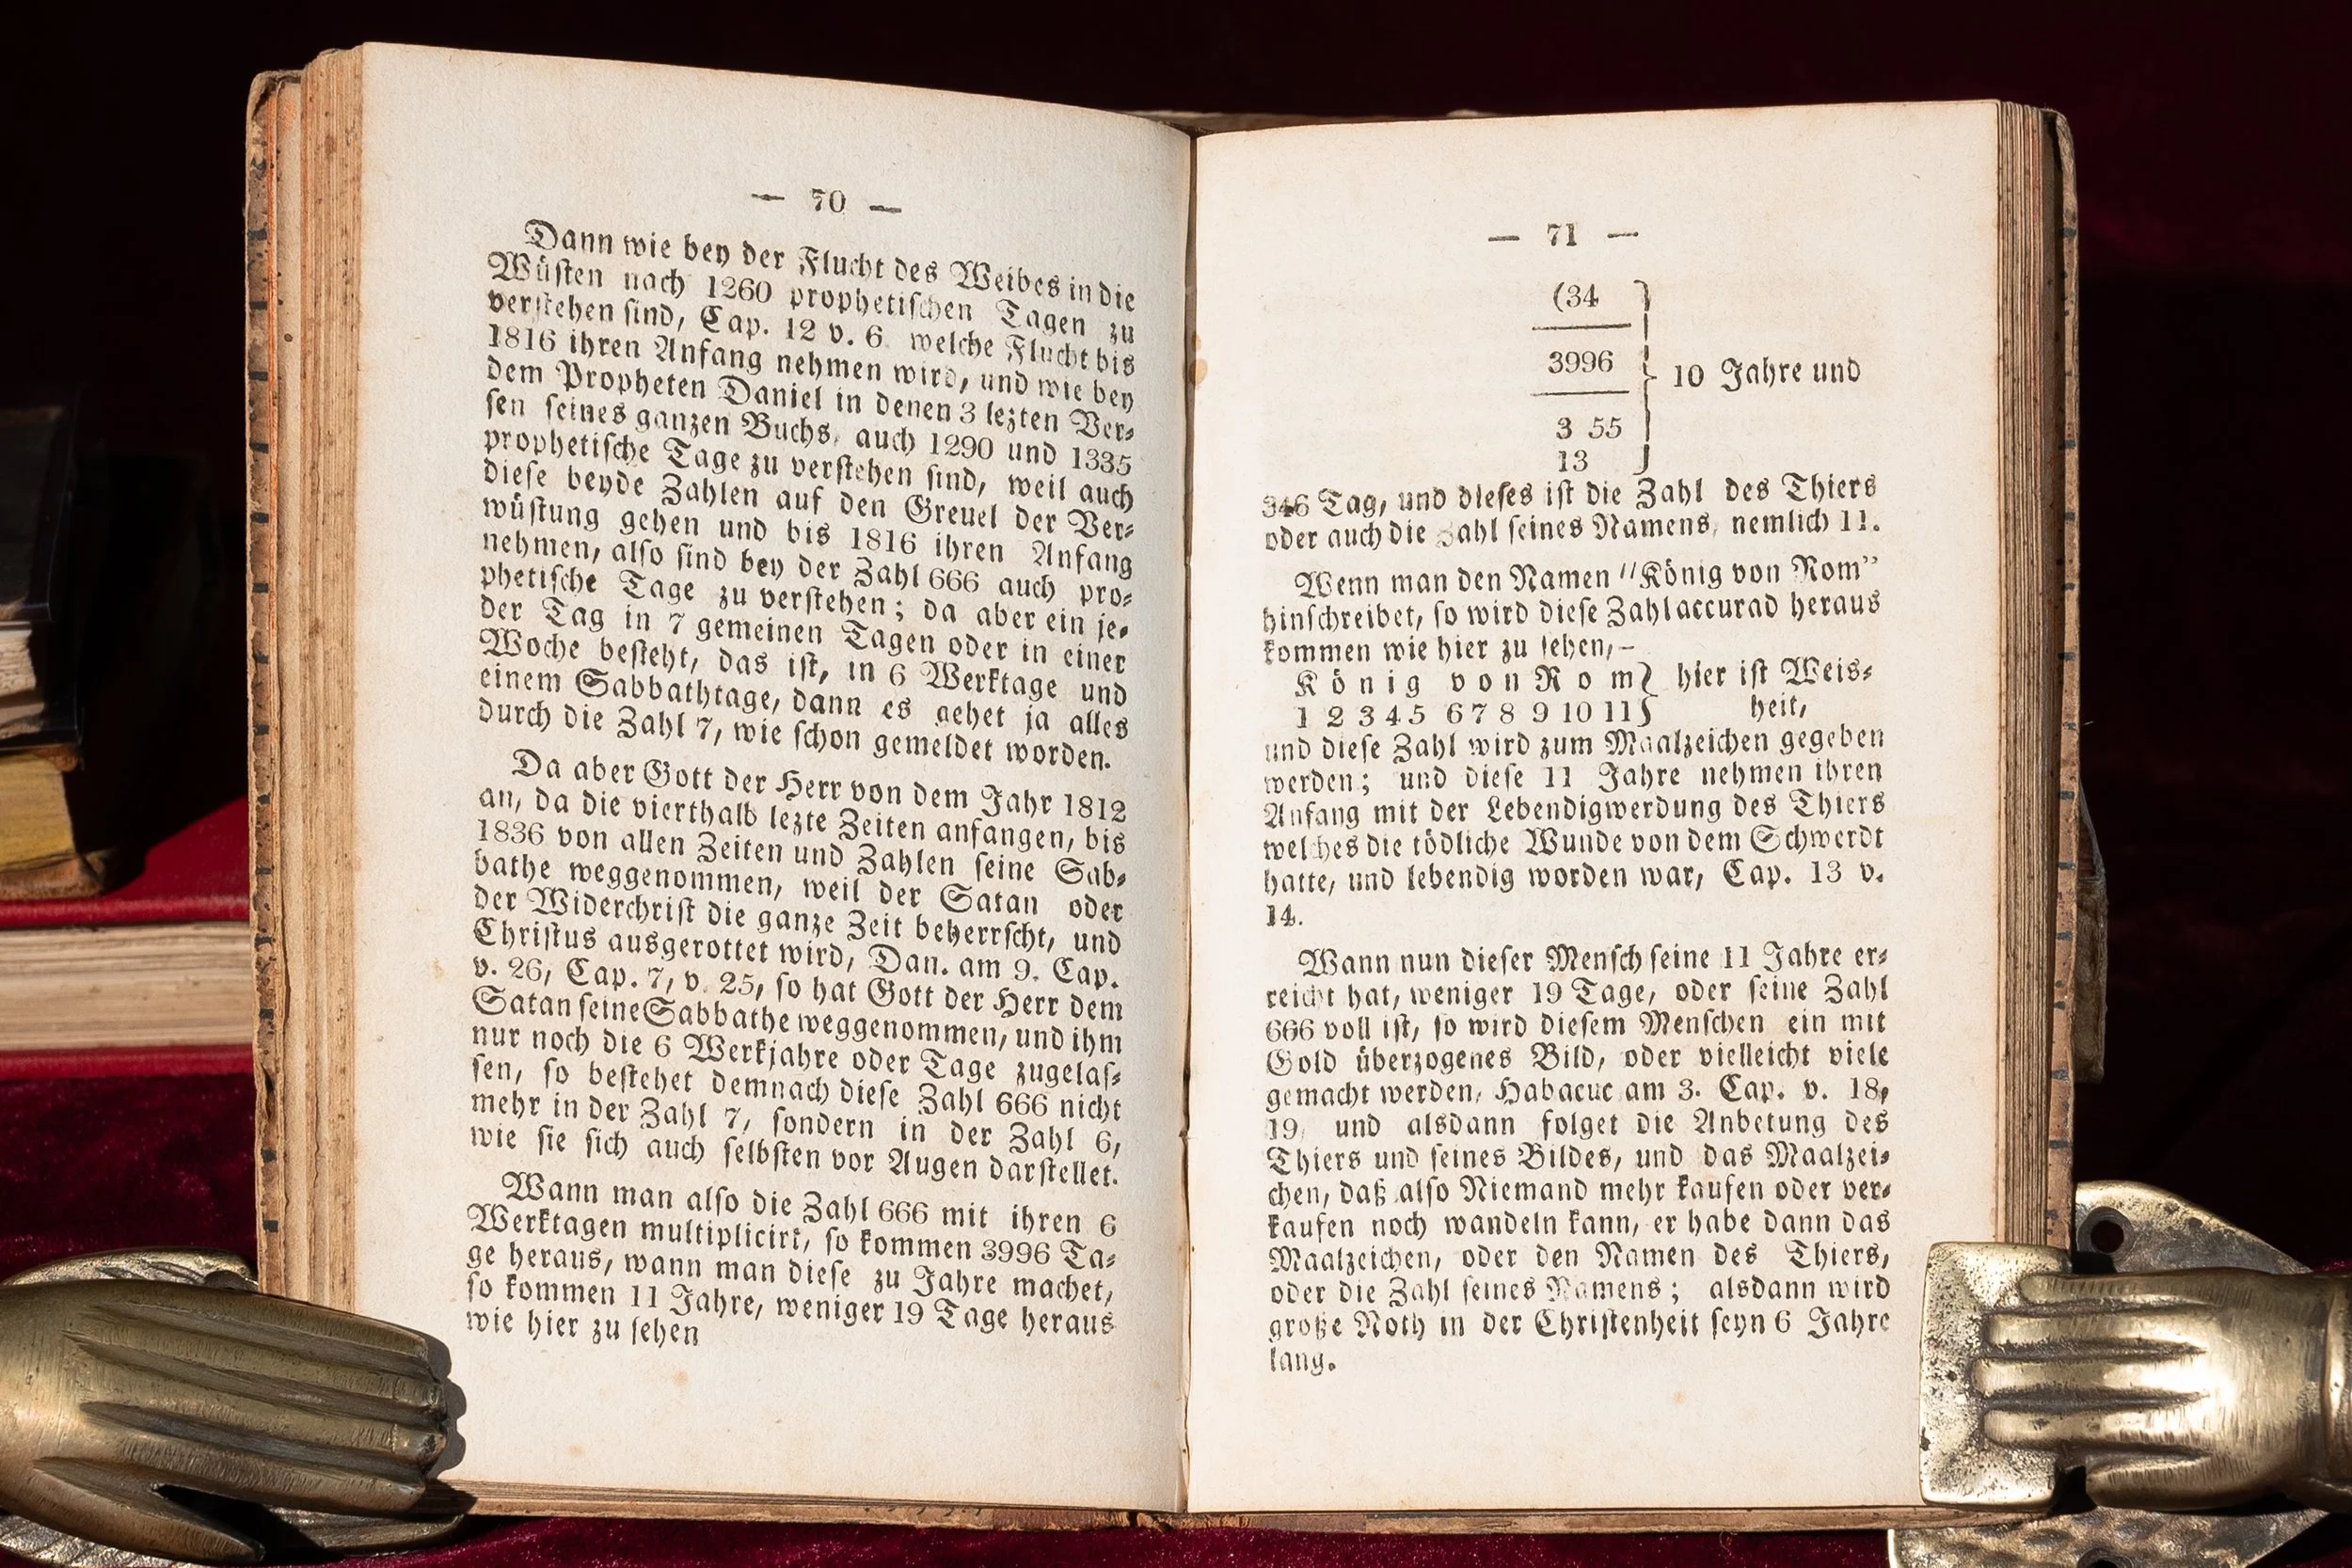 — 70 —
Dann wie bey der Flucht des Weibes in die
Wüſten nach 1260 prophetiſchen Tagen zu
verſtehen ſind, Cap. 12 v. 6 welche Flucht bis
1816 ihren Anfang nehmen wird, und wie bey
dem Propheten Daniel in denen 3 lezten Ver-
ſen ſeines ganzen Buchs, auch 1290 und 1335
prophetiſche Tage zu verſtehen ſind, weil auch
dieſe beyde Zahlen auf den Greuel der Ver-
wüſtung gehen und bis 1816 ihren Anfang
nehmen, alſo ſind bey der Zahl 666 auch pro-
phetiſche Tage zu verſtehen; da aber ein je-
der Tag in 7 gemeinen Tagen oder in einer
Woche beſteht, das iſt, in 6 Werktage und
einem Sabbathtage, dann es gehet ja alles
durch die Zahl 7, wie ſchon gemeldet worden.
Da aber Gott der Herr von dem Jahr 1812
an, da die vierthalb lezte Zeiten anfangen, bis
1836 von allen Zeiten und Zahlen ſeine Sab-
bathe weggenommen, weil der Satan oder
der Widerchriſt die ganze Zeit beherrſcht, und
Chriſtus ausgerottet wird, Dan. am 9. Cap.
v. 26, Cap. 7, v. 25, ſo hat Gott der Herr dem
Satan ſeine Sabbathe weggenommen, und ihm
nur noch die 6 Werkjahre oder Tage zugelaſ-
ſen, ſo beſtehet demnach dieſe Zahl 666 nicht
mehr in der Zahl 7, ſondern in der Zahl 6,
wie ſie ſich auch ſelbſten vor Augen darſtellet.
Wann man alſo die Zahl 666 mit ihren 6
Werktagen multiplicirt, ſo kommen 3996 Ta-
ge heraus, wann man dieſe zu Jahre machet,
ſo kommen 11 Jahre, weniger 19 Tage heraus
wie hier zu ſehen
— 71 —
(34
3996
10 Jahre und
3 55
13
346 Tag, und dieſes iſt die Zahl des Thiers
oder auch die Zahl ſeines Namens, nemlich 11.
Wenn man den Namen "König von Rom"
hinſchreibet, ſo wird dieſe Zahl accurad heraus
kommen wie hier zu ſehen,–
K ö n i g v o n R o m } hier iſt Weis-
1 2 3 4 5 6 7 8 9 10 11 } heit,
und dieſe Zahl wird zum Maalzeichen gegeben
werden; und dieſe 11 Jahre nehmen ihren
Anfang mit der Lebendigwerdung des Thiers
welches die tödliche Wunde von dem Schwerdt
hatte, und lebendig worden war, Cap. 13 v.
14.
Wann nun dieſer Menſch ſeine 11 Jahre er-
reicht hat, weniger 19 Tage, oder ſeine Zahl
666 voll iſt, ſo wird dieſem Menſchen ein mit
Gold überzogenes Bild, oder vielleicht viele
gemacht werden, Habacuc am 3. Cap. v. 18,
19, und alsdann folget die Anbetung des
Thiers und ſeines Bildes, und das Maalzei-
chen, daß alſo Niemand mehr kaufen oder ver-
kaufen noch wandeln kann, er habe dann das
Maalzeichen, oder den Namen des Thiers,
oder die Zahl ſeines Namens; alsdann wird
große Noth in der Chriſtenheit ſeyn 6 Jahre
lang.